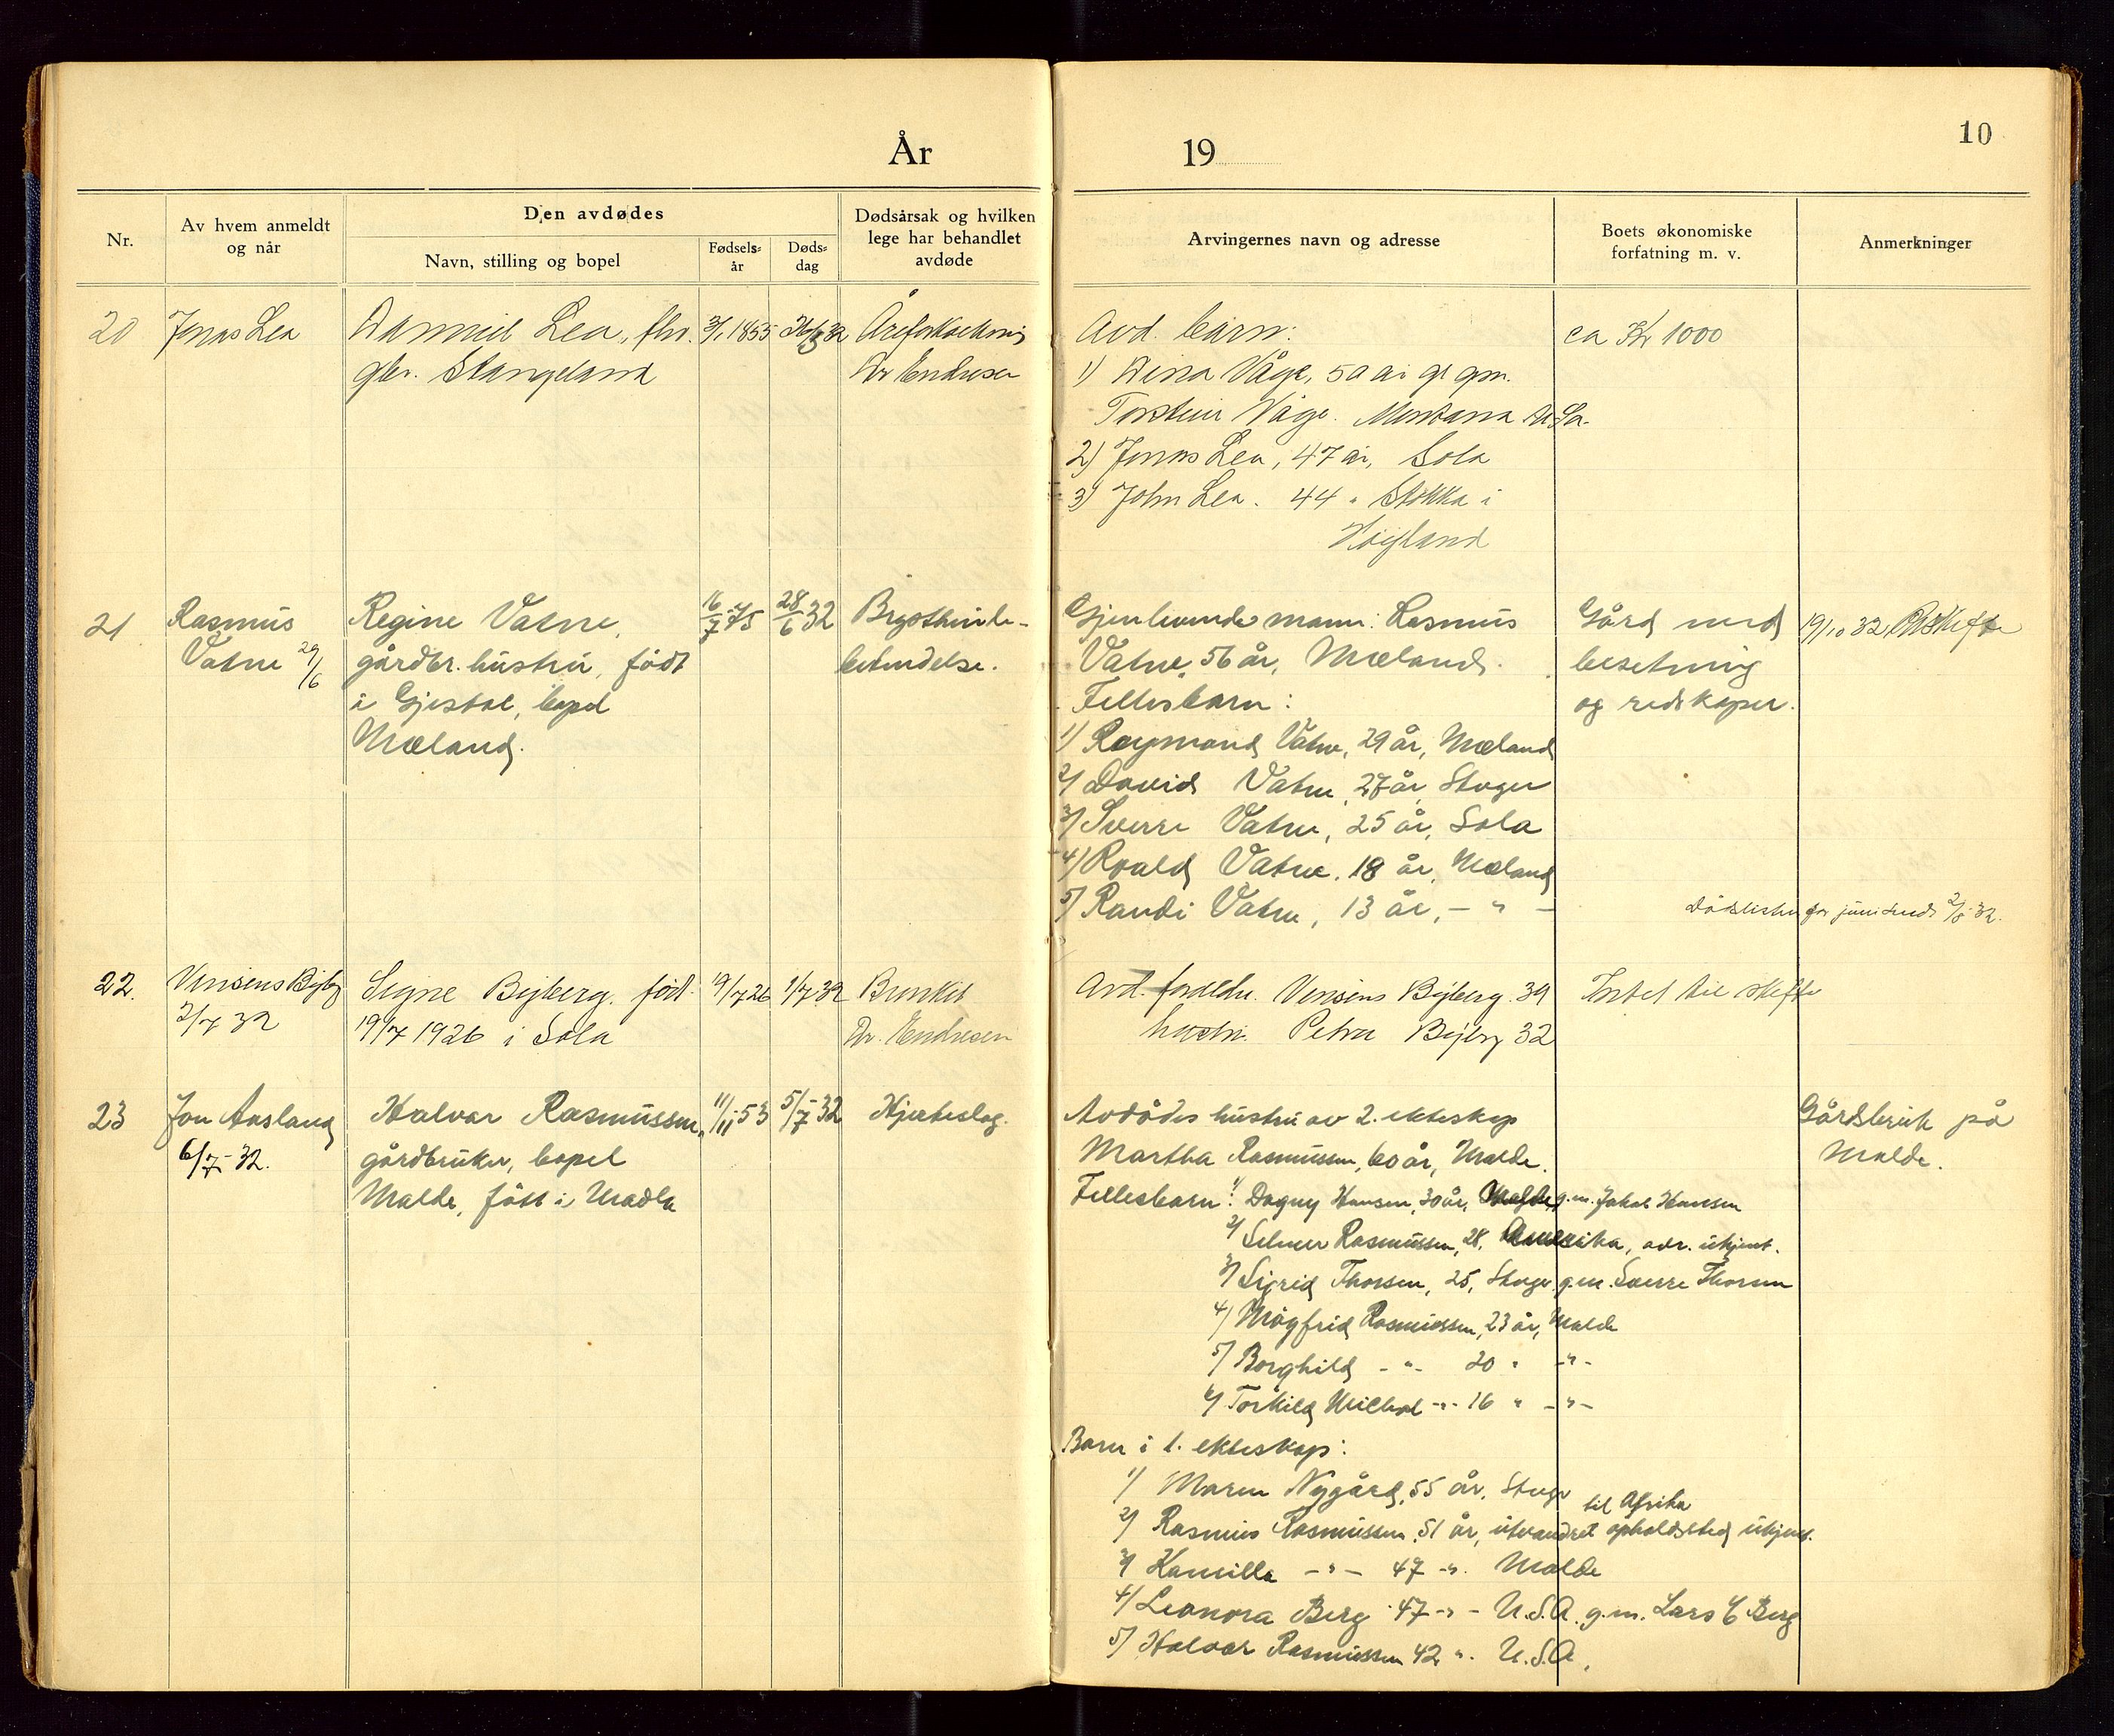 År
19
10
Nr.
Av hvem anmeldt
og når
Den avdødes
Navn, stilling og bopel
Fødsels-
år
Døds-
dag
Dødsårsak og hvilken
lege har behandlet
avdøde
Arvingernes navn og adresse
Boets økonomiske
forfatning m. v.
Anmerkninger
20
Jonas Lea
Lea, fhv.
gbr. Stangeland
1855
Åreforkalkning
Dr Endresen
Avd. barn:
1) Dina Våge, 50 år gl gm.
Torstein Våge. Montana U.S.A.
2) Jonas Lea, 47 år, Sola
3) John Lea. 44 " Stokka i
Høyland
ca Kr 1000
21
Rasmus
Vatne 29/6
Regine Vatne,
gårdbr. hustru, født
i Gjestal, bopel
Mæland.
16/7-75
28/6 32
Brysthinde-
betendelse.
Gjenlevende mann: Rasmus
Vatne, 56 år, Mæland.
Fellesbarn:
1) Raymond Vatne, 29 år, Mæland
2) David Vatne, 27 år, Stvgr
3) Sverre Vatne, 25 år, Sola
4) Roald Vatne, 18 år, Mæland
5) Randi Vatne, 13 år, - " -
Gård med
besetning
og redskaper.
19/10 32
Dødslisten for juni sendt 2/8-32.
22.
Vinsens Byberg
2/7 32
Signe Byberg. født
19/7 1926 i Sola
19/7 26
1/7 32
Dr. Endresen
Avd. foreldre. Vinsens Byberg. 39
hustru. Petra Byberg 32
Intet til skifte
23
Jon Aasland
6/7-32.
Halvar Rasmussen,
gårdbruker, bopel
Malde, født i Madla
11/11-53
5/7-32
Hjerteslag.
Avdødes hustru av 2. ekteskap
Martha Rasmussen, 60 år, Malde.
Fellesbarn: 1) Dagny Hansen, 30 år, g.m. Jakob Hansen
2) Selmer Rasmussen, 28, Amerika, adr. ukjent.
3) Sigrid Thorsen, 25, Stvgr g.m. Sverre Thorsen
4) Magfrid Rasmussen, 23 år, Malde
5) Borghild - " - 20 " - " -
6) Torkild - " - 16 " - " -
Barn i 1. ekteskap:
1) Maren Nygård, 55 år, Stvgr
2) Rasmus Rasmussen, 51 år, utvandret til Afrika opholdssted ukjent.
3) Kamilla - " - 47 - " . Malde
4) Leonora Berg 47 - " - U.S.A. g.m. Lars C Berg
5) Halvar Rasmussen 42 " . U.S.A.
Gårdsbruk på
Malde.